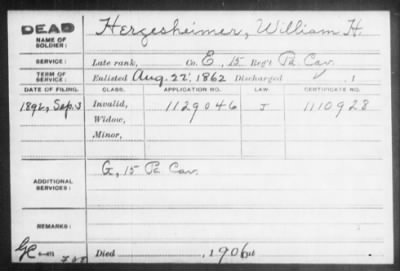 DEAD
NAME OF SOLDIER: Hergesheimer, William H.
SERVICE: Late rank, Co. E, 15 Reg't Pa. Cav.
TERM OF SERVICE: Enlisted Aug. 22, 1862 Discharged , 1
DATE OF FILING. CLASS. APPLICATION NO. LAW. CERTIFICATE NO.
1892, Sep. 3 Invalid, 1129046 J 1110928
Widow,
Minor,
ADDITIONAL SERVICES: G, 15 Pa. Cav.
REMARKS:
Died , 1906